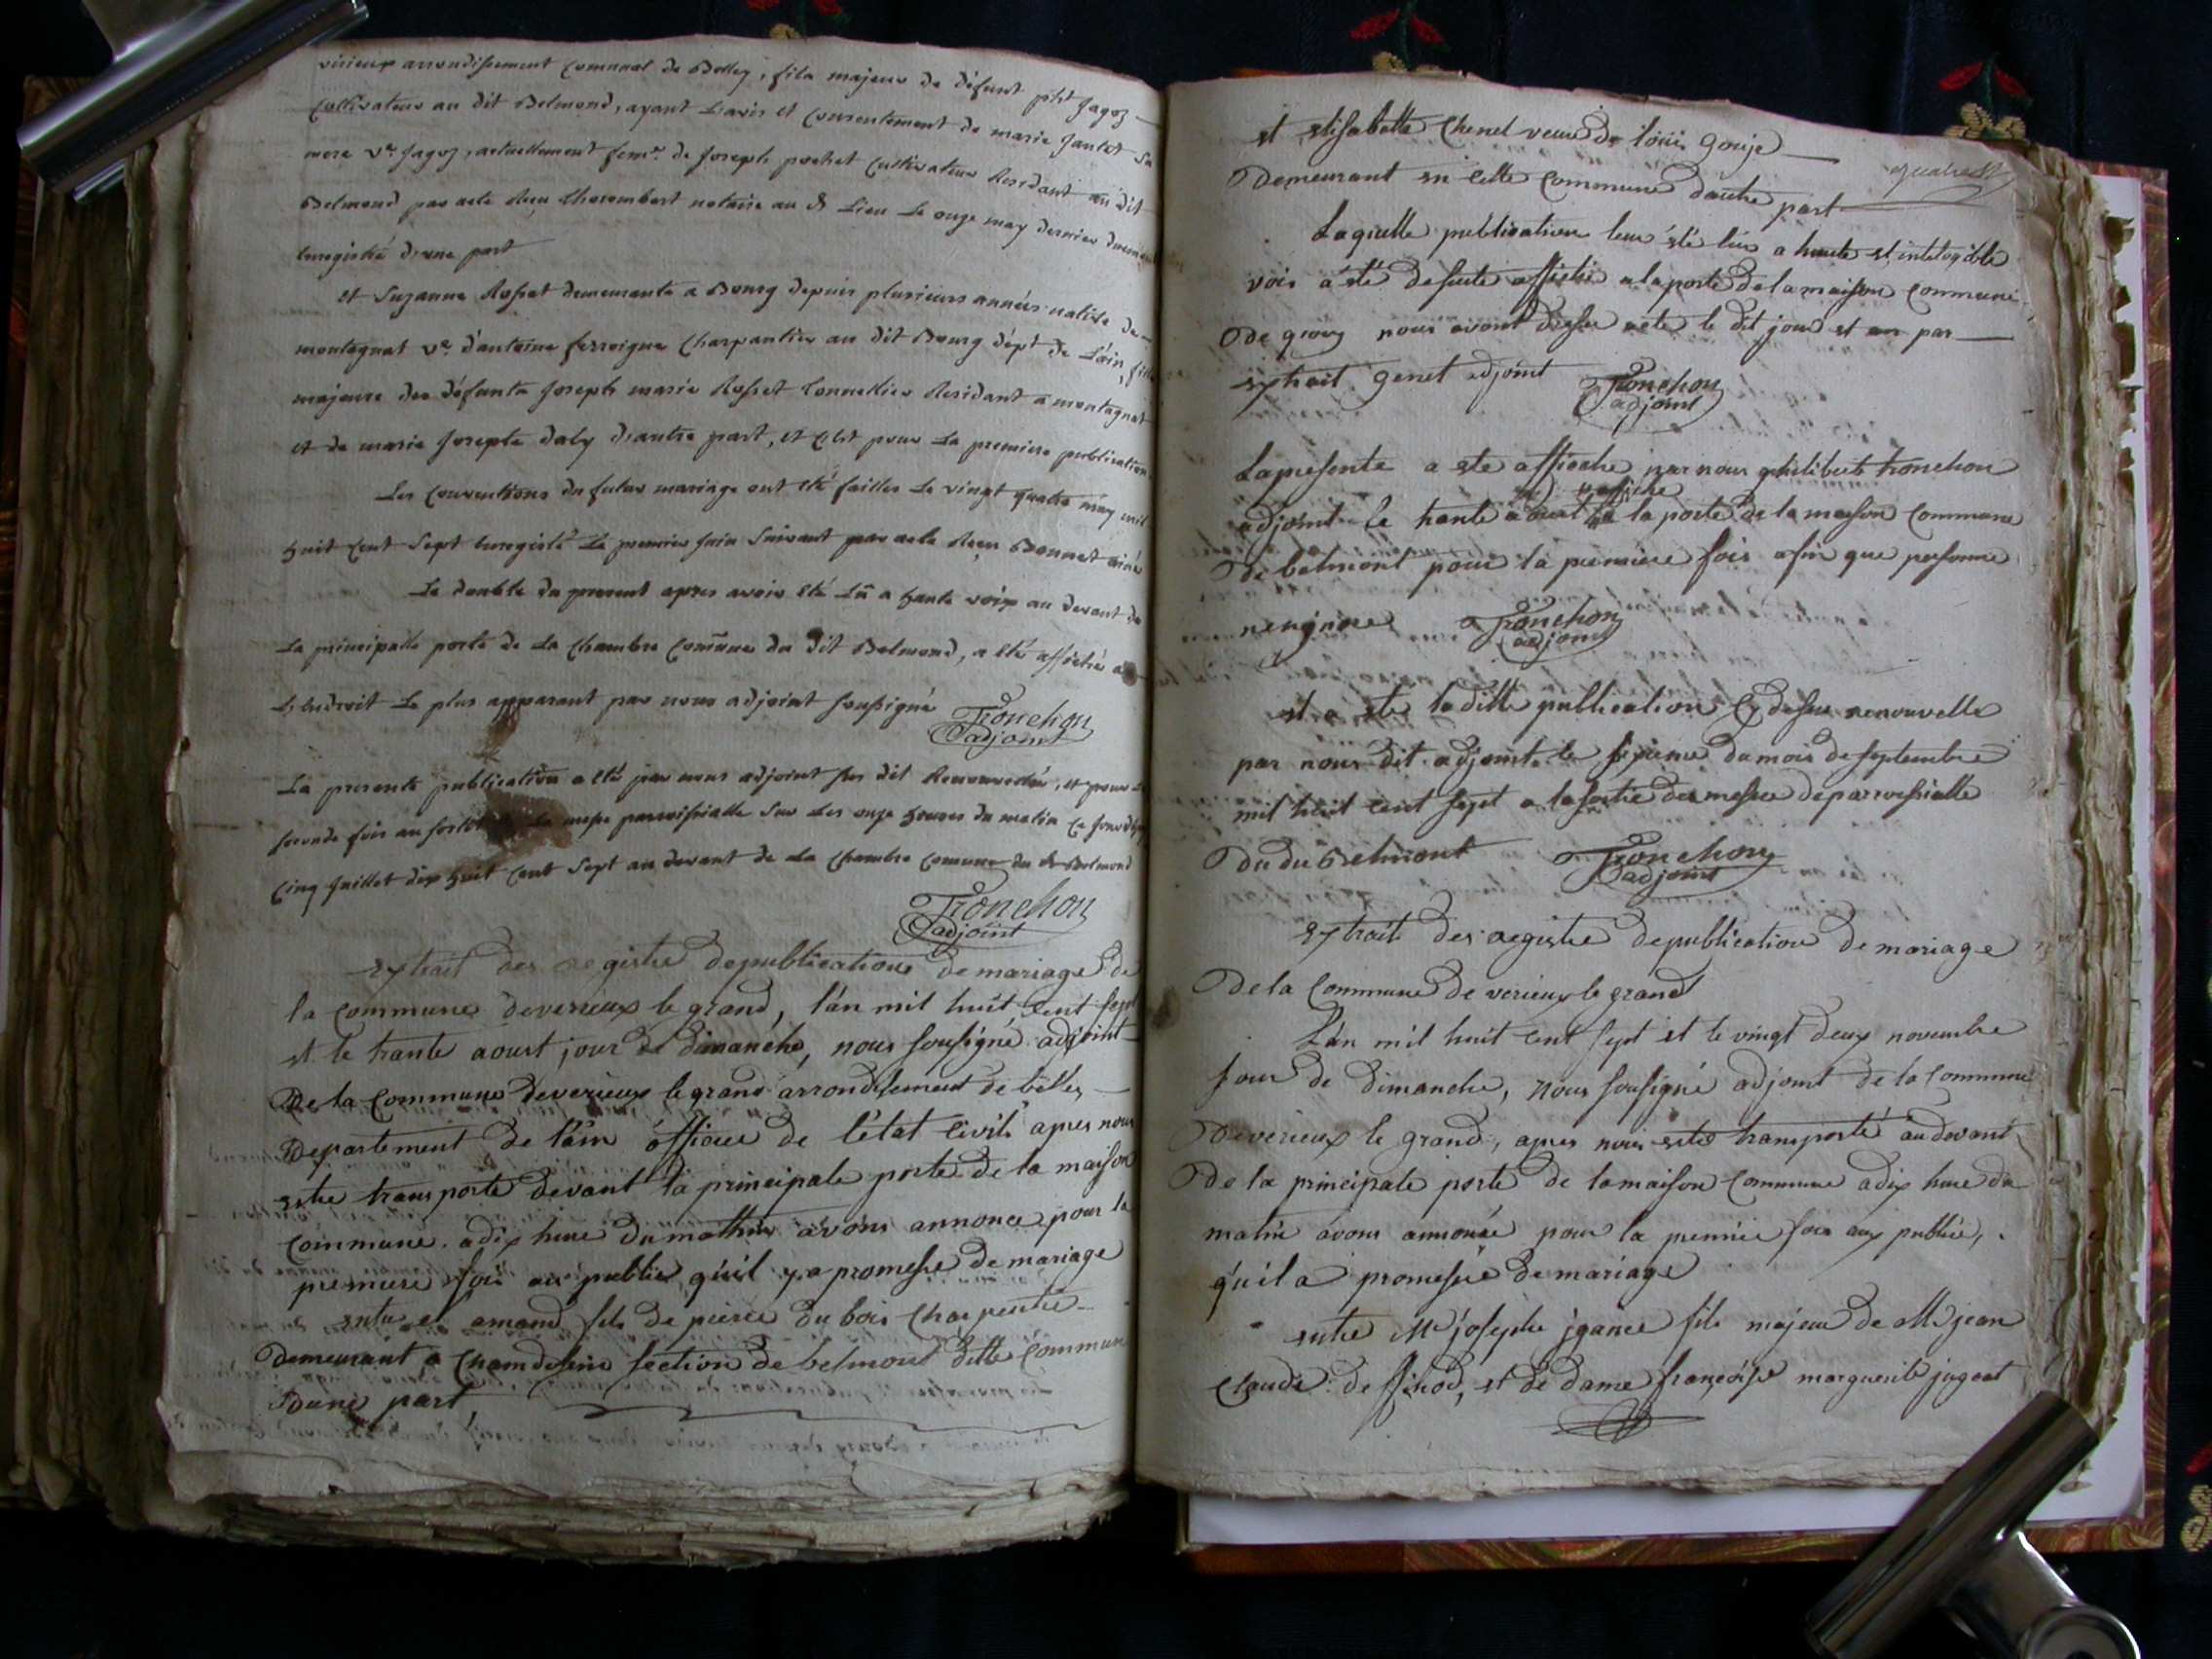 virieux arrondissement Comunal de Belley, fils majeur de défunt pht Jagoz
Cultivateur au dit Belmond, ayant L'avis et Consentement de marie Jantet sa
mere ve. Jagoz, actuellement feme. de Joseph pochet Cultivateur Residant au dit
Belmond par acte Reçu Cherembert notaire au d. Lieu Le onze may dernier
Enregistré d'une part
et Suzanne Rosset demeurante a Bourg depuis plusieurs années native de
montagnat ve. d'antoine ferroigue Charpantier au dit Bourg dépt de L'ain, fille
majeure des défunts Joseph marie Rosset Tonnellier Residant a montagnat
et de marie Josephe daly d'autre part, et C'est pour La premiere publication
Les Conventions du futur mariage ont été faittes Le vingt quatre may mil
huit Cent Sept Enregistré Le premier Juin Suivant par acte Reçu Bonnet ainé
Le double du present apres avoir été Lû a haute voix au devant de
La principalle porte de La Chambre Comune du dit Belmond, a été affichée a
L'Endroit Le plus apparant par nous adjoint soussigné
Tronchon
adjoint
La presente publication a été par nous adjoint sus dit Renouvellée, et pour La
seconde fois au sortir de La messe parroissialle Sur Les onze heures du matin Ce Jourd'huy
Cinq Juillet dix huit Cent Sept au devant de La Chambre Comune du d. Belmond
Tronchon
adjoint
Extrait des registre de publications de mariage de
la Commune de verieux le grand, l'an mil huit Cent sept
et le trante aoust jour de dimanche, nous sousigné adjoint
De la Commune de verieux le grand arrondisement de belley
Departement de l'ain officier de l'état Civil apres nous
estre transporté devant la principale porte de la maison
Commune a dix heure du mathin avons annonce pour la
premiere fois au public qu'il y a promesse de mariage
entre et amand fils de pierre du bois Charpentie
Demeurant a section de belmont ditte Commune
Dune part
et elisabette Chenet veuve de louis gouje
Demeurant en cette Commune d'autre part
Laquelle publication leur été lue a haute et inteligible
voix a été desuite affichée a la porte de la maison Commune
De quoy nous avons dressé acte le dit jour et an par
extrait genet adjoint
Tronchon
adjoint
La presente a ete affichée par nous philibert tronchon
adjoint le trante aoust a la porte de la maison Commune
De belmont pour la premiere fois afin que personne
nen ignore
Tronchon
adjoint
et a ete laditte publication Cy dessus renouvelle
par nous dit adjoint le sixieme du mois de septembre
mil huit cent sept a la sortie des messe de parroissialle
Du du Belmont
Tronchon
adjoint
Extrait des registre de publication de mariage
De la Commune de verieux le grand
L'an mil huit cent sept et le vingt deux novembre
Jour de dimanche, nous sousigné adjoint de la Commune
De verieux le grand, apres nous estre transporté au devant
De la principale porte de la maison Commune a dix heure du
matin avons annoncée pour la premiere fois aux publics,
qu'il a promesse de mariage
entre Mr josephe fils majeur de Mr jean
Claude de sinod, et de dame françoise marguerite jugeat